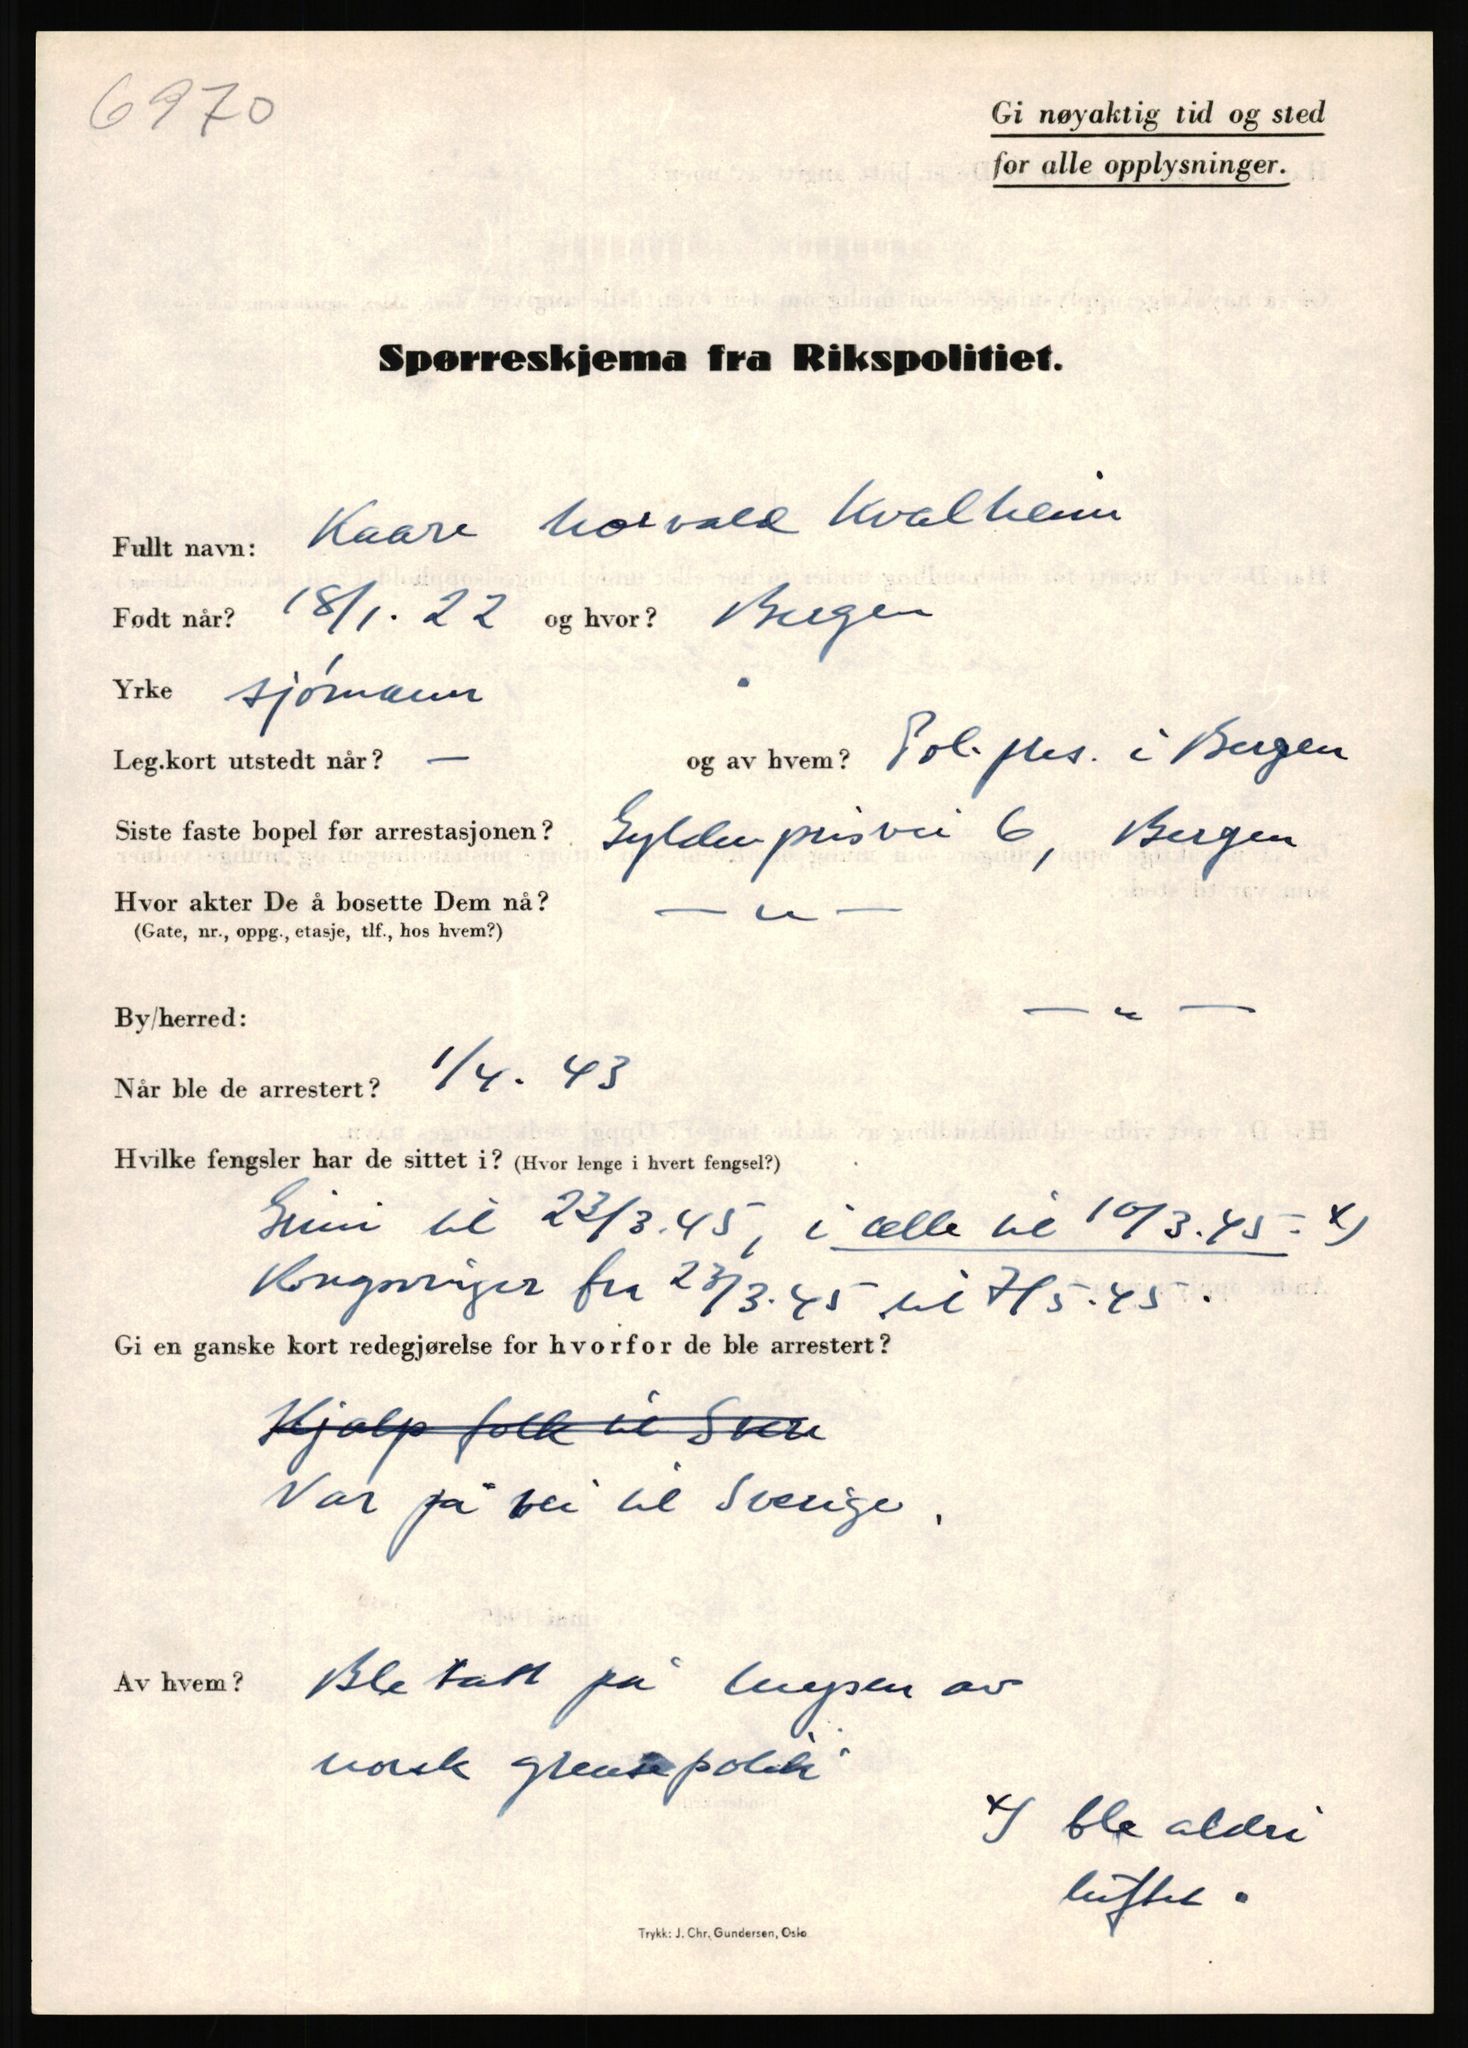 6970
Gi nøyaktig tid og sted
for alle opplysninger.
Spørreskjema fra Rikspolitiet.
Fullt navn: Kaare Norvald Kvalheim
Født når? 18/1. 22 og hvor? Bergen
Yrke sjómann
Leg.kort utstedt når? — og av hvem? Pol. pres. i Bergen
Siste faste bopel før arrestasjonen? Gyldenprisvei 6, Bergen
Hvor akter De å bosette Dem nå? — " —
(Gate, nr., oppg., etasje, tlf., hos hvem?)
By/herred: — " —
Når ble de arrestert? 1/4. 43
Hvilke fengsler har de sittet i? (Hvor lenge i hvert fengsel?)
Grini til 23/3.45, i celle til 10/3.45. x)
Kongsvinger fra 23/3.45 til 7/5.45.
Gi en ganske kort redegjørelse for hvorfor de ble arrestert?
Hjalp folk til Sveri
Var på vei til Sverige.
Av hvem? Ble tatt på Mysen av
norsk grensepoliti
x) ble aldri
luftet.
Trykk: J. Chr. Gundersen, Oslo